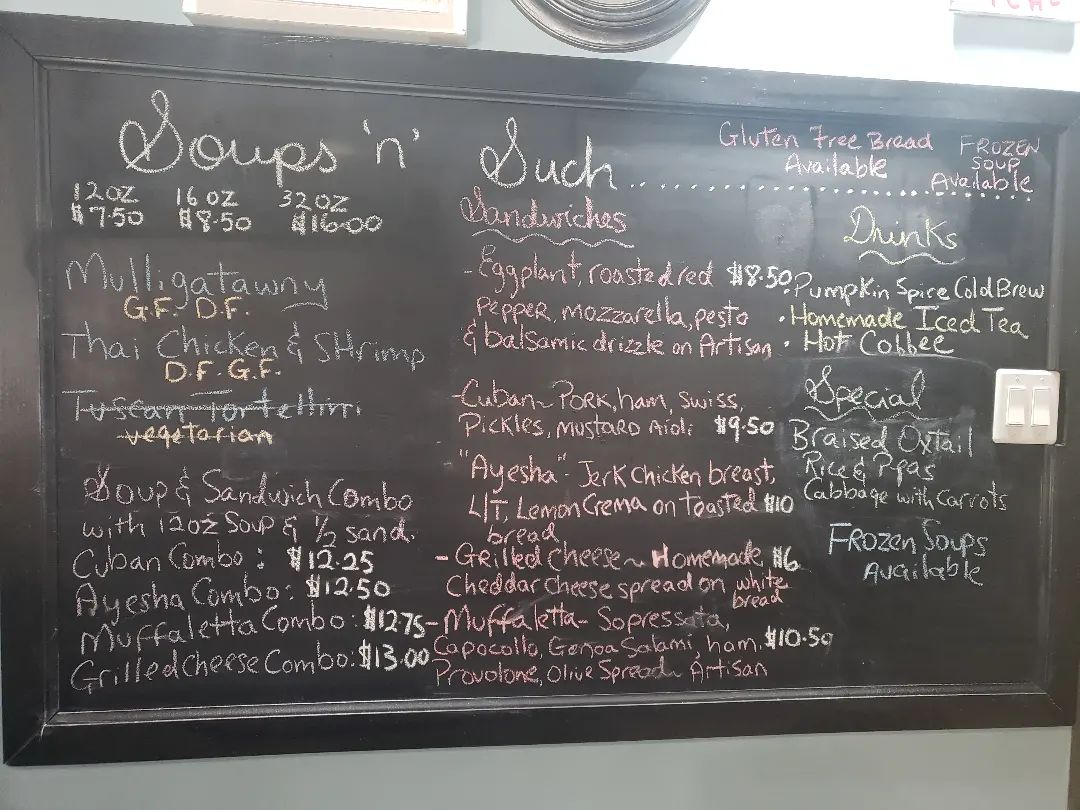 Soups 'n' Such
Gluten Free Bread
Available
FROZEN
SOUP
Available
12OZ 16OZ 32OZ
$7.50 $8.50 $16.00
Mulligatawny
G.F. D.F.
Thai Chicken & SHrimp
D.F. G.F.
Tuscan Tortellini
vegetarian
Soup & Sandwich Combo
with 12oz Soup & 1/2 sand.
Cuban Combo : $12.25
Ayesha Combo: $12.50
Muffaletta Combo: $12.75
Grilled cheese Combo: $13.00
Sandwiches
- Eggplant, roasted red $8.50
Pepper, mozzarella, pesto
& balsamic drizzle on Artisan
- Cuban ~ Pork, ham, swiss,
Pickles, Mustard Aioli $9.50
"Ayesha" - Jerk chicken breast,
L/T, Lemon Crema on toasted $10
bread
- Grilled cheese ~ Homemade $6
Cheddar cheese spread on white
bread
- Muffaletta - Sopressata,
Capocollo, Genoa Salami, ham. $10.50
Provolone, Olive Spread Artisan
Drinks
• Pumpkin Spice Cold Brew
• Homemade Iced Tea
• Hot Coffee
Special
Braised Oxtail
Rice & Peas
Cabbage with carrots
Frozen Soups
Available